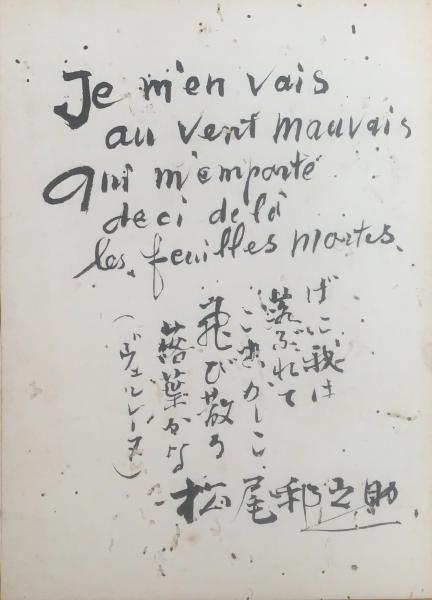 Je m'en vais
au vent mauvais
qui m'emporte
deci delà
les feuilles mortes.
げに我は
落ぶれて
ここかしこ
飛び散る
落葉かな
（ヴェルレーヌ）
松尾邦之助